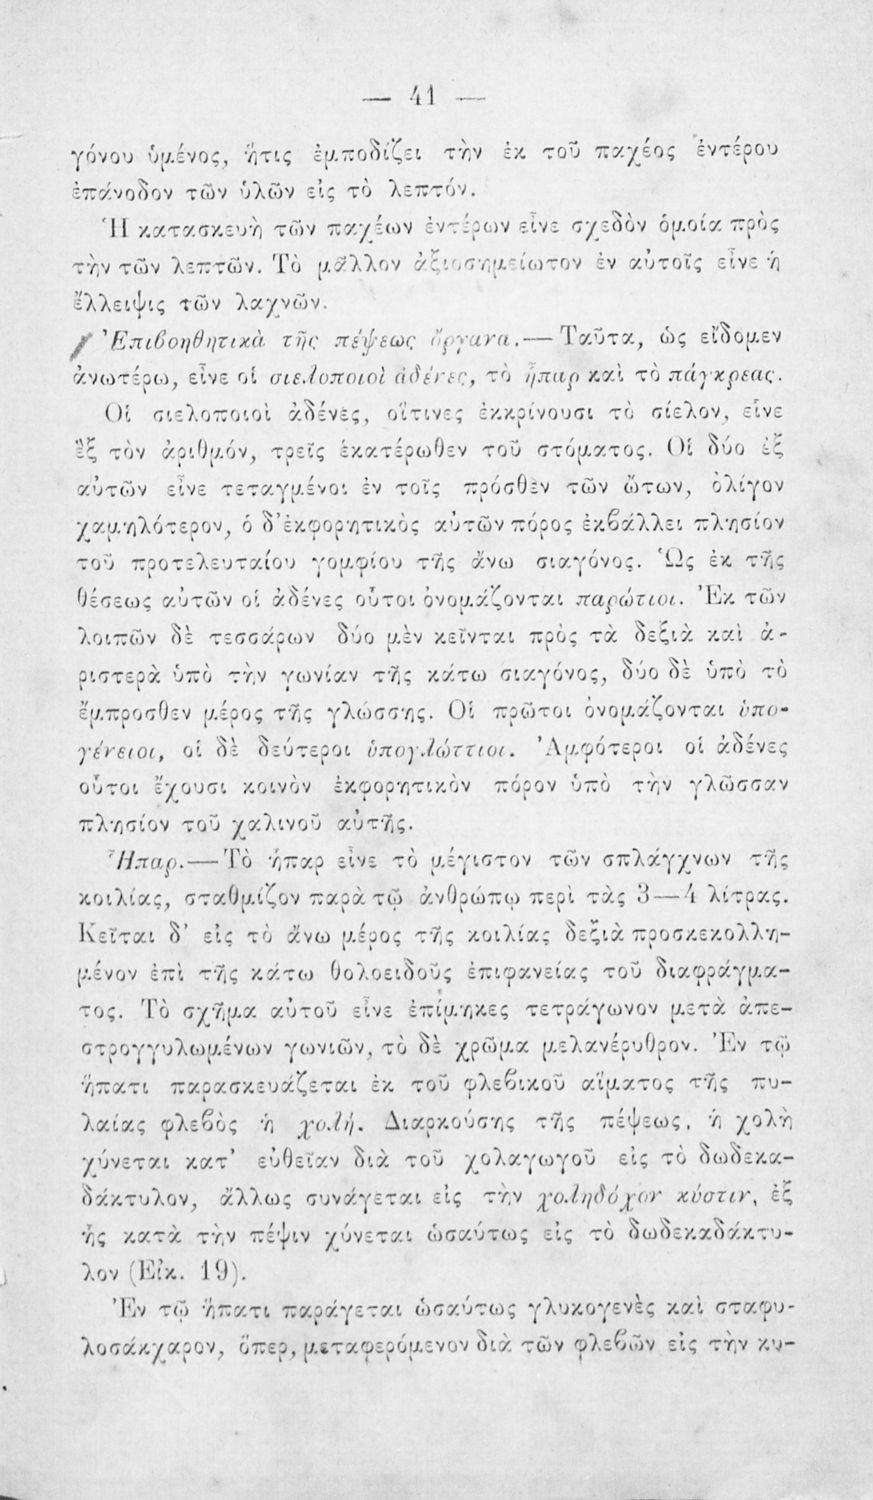 — 41 —
γόνου ὑμένος, ἥτις ἐμποδίζει τὴν ἐκ τοῦ παχέος ἐντέρου
ἐπάνοδον τῶν ὑλῶν εἰς τὸ λεπτόν.
Ἡ κατασκευὴ τῶν παχέων ἐντέρων εἶνε σχεδὸν ὁμοία πρὸς
τὴν τῶν λεπτῶν. Τὸ μᾶλλον ἀξιοσημείωτον ἐν αὐτοῖς εἶνε ἡ
ἔλλειψις τῶν λαχνῶν.
Ἐπιβοηθητικὰ τῆς πέψεως ὄργανα.— Ταῦτα, ὡς εἴδομεν
ἀνωτέρω, εἶνε οἱ σιελοποιοὶ ἀδένες, τὸ ἧπαρ καὶ τὸ πάγκρεας.
Οἱ σιελοποιοὶ ἀδένες, οἵτινες ἐκκρίνουσι τὸ σίελον, εἶνε
ἓξ τὸν ἀριθμόν, τρεῖς ἑκατέρωθεν τοῦ στόματος. Οἱ δύο ἐξ
αὐτῶν εἶνε τεταγμένοι ἐν τοῖς πρόσθεν τῶν ὤτων, ὀλίγον
χαμηλότερον, ὁ δ’ἐκφορητικὸς αὐτῶν πόρος ἐκβάλλει πλησίον
τοῦ προτελευταίου γομφίου τῆς ἄνω σιαγόνος. Ὡς ἐκ τῆς
θέσεως αὐτῶν οἱ ἀδένες οὗτοι ὀνομάζονται παρώτιοι. Ἐκ τῶν
λοιπῶν δὲ τεσσάρων δύο μὲν κεῖνται πρὸς τὰ δεξιὰ καὶ ἀ-
ριστερὰ ὑπὸ τὴν γωνίαν τῆς κάτω σιαγόνος, δύο δὲ ὑπὸ τὸ
ἔμπροσθεν μέρος τῆς γλώσσης. Οἱ πρῶτοι ὀνομάζονται ὑπο-
γένειοι, οἱ δὲ δεύτεροι ὑπογλώττιοι. Ἀμφότεροι οἱ ἀδένες
οὗτοι ἔχουσι κοινὸν ἐκφορητικὸν πόρον ὑπὸ τὴν γλῶσσαν
πλησίον τοῦ χαλινοῦ αὐτῆς.
Ἧπαρ.— Τὸ ἧπαρ εἶνε τὸ μέγιστον τῶν σπλάγχνων τῆς
κοιλίας, σταθμίζον παρὰ τῷ ἀνθρώπῳ περὶ τὰς 3—4 λίτρας.
Κεῖται δ’ εἰς τὸ ἄνω μέρος τῆς κοιλίας δεξιὰ προσκεκολλη-
μένον ἐπὶ τῆς κάτω θολοειδοῦς ἐπιφανείας τοῦ διαφράγμα-
τος. Τὸ σχῆμα αὐτοῦ εἶνε ἐπίμηκες τετράγωνον μετὰ ἀπε-
στρογγυλωμένων γωνιῶν, τὸ δὲ χρῶμα μελανέρυθρον. Ἐν τῷ
ἥπατι παρασκευάζεται ἐκ τοῦ φλεβικοῦ αἵματος τῆς πυ-
λαίας φλεβὸς ἡ χολή. Διαρκούσης τῆς πέψεως, ἡ χολὴ
χύνεται κατ’ εὐθεῖαν διὰ τοῦ χολαγωγοῦ εἰς τὸ δωδεκα-
δάκτυλον, ἄλλως συνάγεται εἰς τὴν χοληδόχον κύστιν, ἐξ
ἧς κατὰ τὴν πέψιν χύνεται ὡσαύτως εἰς τὸ δωδεκαδάκτυ-
λον (Εἰκ. 19).
Ἐν τῷ ἥπατι παράγεται ὡσαύτως γλυκογενὲς καὶ σταφυ-
λοσάκχαρον, ὅπερ, μεταφερόμενον διὰ τῶν φλεβῶν εἰς τὴν κυ-